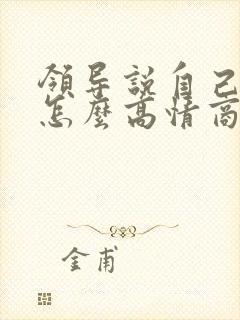 領导說自己
怎麼高情商
金甫